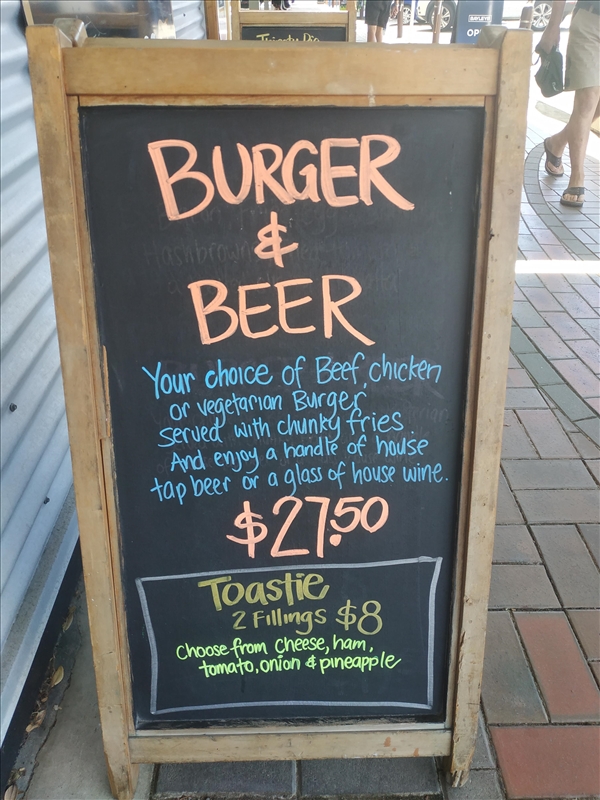 BURGER
&
BEER
Your choice of Beef, chicken
or vegetarian Burger
served with chunky fries
And enjoy a handle of house
tap beer or a glass of house wine.
$27.50
Toastie
2 Fillings $8
Choose from Cheese, ham,
tomato, onion & pineapple